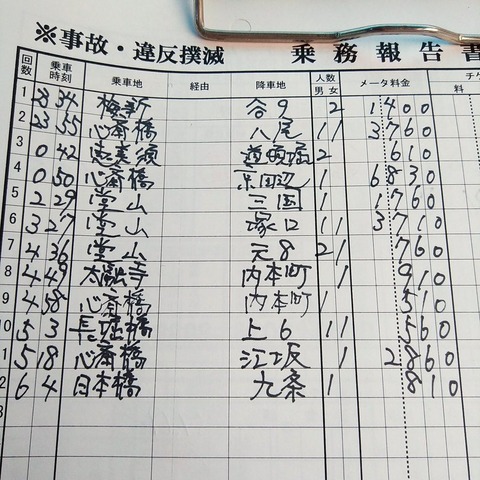 ※事故・違反撲滅 乗務報告書
回数 乗車時刻 乗車地 経由 降車地 人数 男 女 メータ料金 チケ 料
1 23 34 梅新 谷9 2 1400
2 23 55 心斎橋 八尾 1 1 3760
3 0 42 恵美須 道頓堀 2 610
4 0 50 心斎橋 東田辺 1 6830
5 2 29 堂山 三国 1 1760
6 3 27 堂山 塚口 1 1 3710
7 4 36 堂山 天8 2 1 760
8 4 49 太融寺 内本町 1 910
9 4 58 心斎橋 内本町 1 510
10 5 3 長堀橋 上6 1 1 560
1 5 18 心斎橋 江坂 1 2860
2 6 4 日本橋 九条 1 810